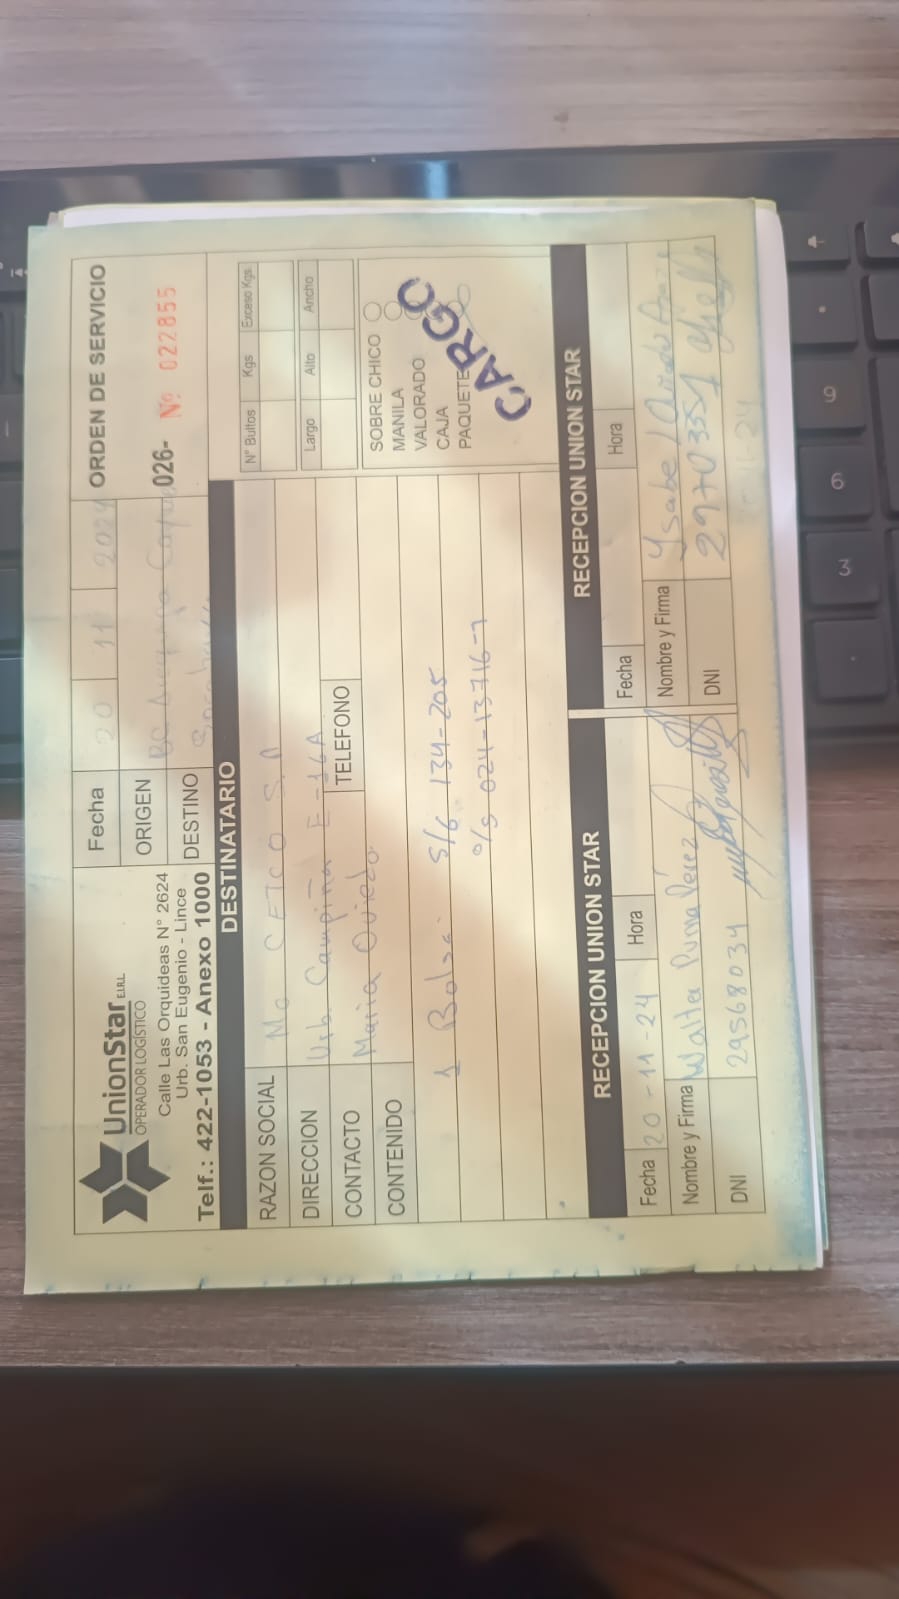 UnionStar E.I.R.L.
OPERADOR LOGÍSTICO
Calle Las Orquideas N° 2624
Urb. San Eugenio - Lince
Telf.: 422-1053 - Anexo 1000
Fecha 20 11 2024
ORIGEN BC Arequipa
DESTINO
ORDEN DE SERVICIO
026- Nº 022855
DESTINATARIO
RAZON SOCIAL Mc CETCO S.A
DIRECCION Urb. Campiña E-16A
CONTACTO Maria Oviedo
TELEFONO
CONTENIDO
1 Bolsa. S/G 134-205
O/S 024-13716-7
N° Bultos Kgs Exceso Kgs.
Largo Alto Ancho
SOBRE CHICO
MANILA
VALORADO
CAJA
PAQUETE
CARGO
RECEPCION UNION STAR
Fecha 20-11-24 Hora
Nombre y Firma Walter Puma Pérez
DNI 29568034
RECEPCION UNION STAR
Fecha Hora
Nombre y Firma
DNI
9
6
3